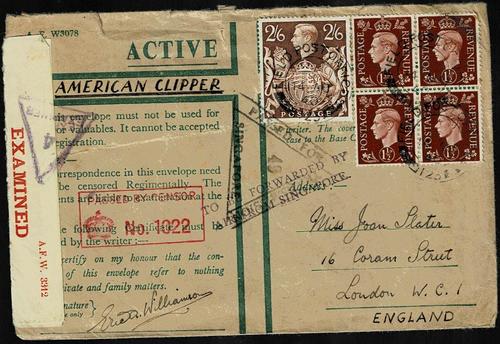 A. F. W3078
ACTIVE
AMERICAN CLIPPER
envelope must not be used for
or valuables. It cannot be accepted
registration.
correspondence in this envelope need
be censored Regimentally.
are liable to examination at the
following Certificate must be
by the writer:—
certify on my honour that the con-
of this envelope refer to nothing
private and family matters.
Signature
only)
Eric A. Williamson
PASSED BY CENSOR
No. 1922
EXAMINED
A.F.W. 3312
4
2/6 2/6
POSTAGE
POSTAGE REVENUE
1½D
POSTAGE REVENUE
1½D
POSTAGE REVENUE
1½D
POSTAGE REVENUE
1½D
FIELD POST OFFICE
writer. The cover
case to the Base C
SINGAPORE
TO BE FORWARDED BY
AIR FROM SINGAPORE
Address
Miss Joan Slater.
16 Coram Street
London W.C.1
ENGLAND